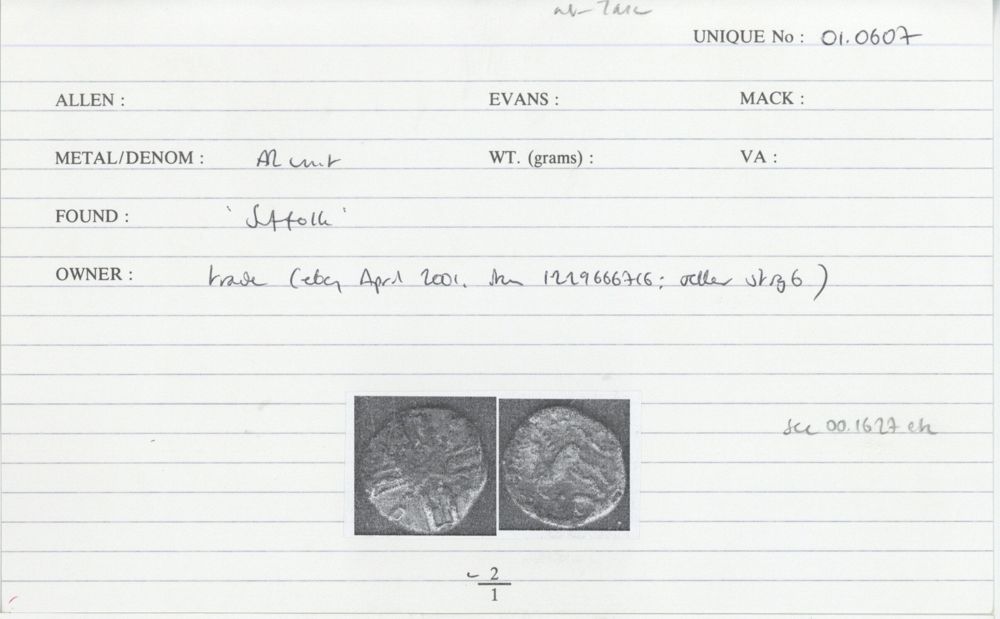 UNIQUE No : 01.0607
ALLEN : EVANS : MACK :
METAL/DENOM : AR unit WT. (grams) : VA :
FOUND : 'Suffolk'
OWNER : trade (ebay April 2001. item 1229666716; seller strg6)
see 00.1627 etc
2
1